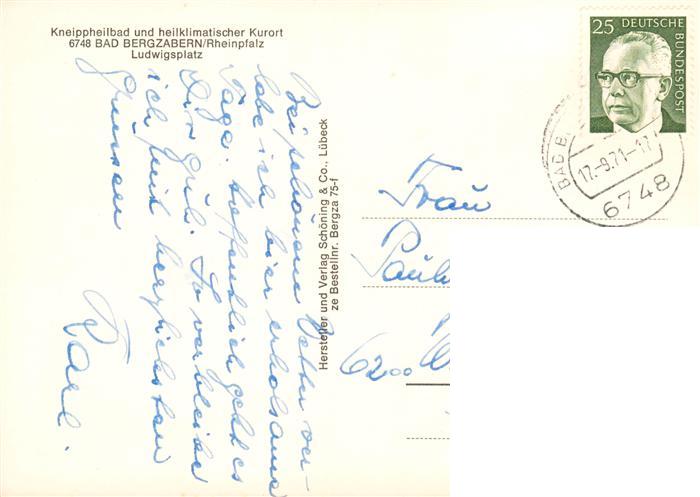 Kneippheilbad und heilklimatischer Kurort
6748 BAD BERGZABERN/Rheinpfalz
Ludwigsplatz
25 DEUTSCHE BUNDESPOST
BAD B
17.-9.71-17
6748
Bei schönem Wetter ver-
lebe ich hier erholsame
Tage. Hoffentlich geht es
Dir gut. So verbleibe
ich mit herzlichsten
Grüssen
Karl.
Hersteller und Verlag Schöning & Co., Lübeck
ze Bestellnr. Bergza 75-f
Frau
Paul
6200